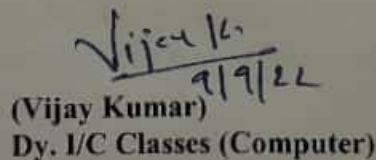 Vijay K.
9/9/22
(Vijay Kumar)
Dy. I/C Classes (Computer)